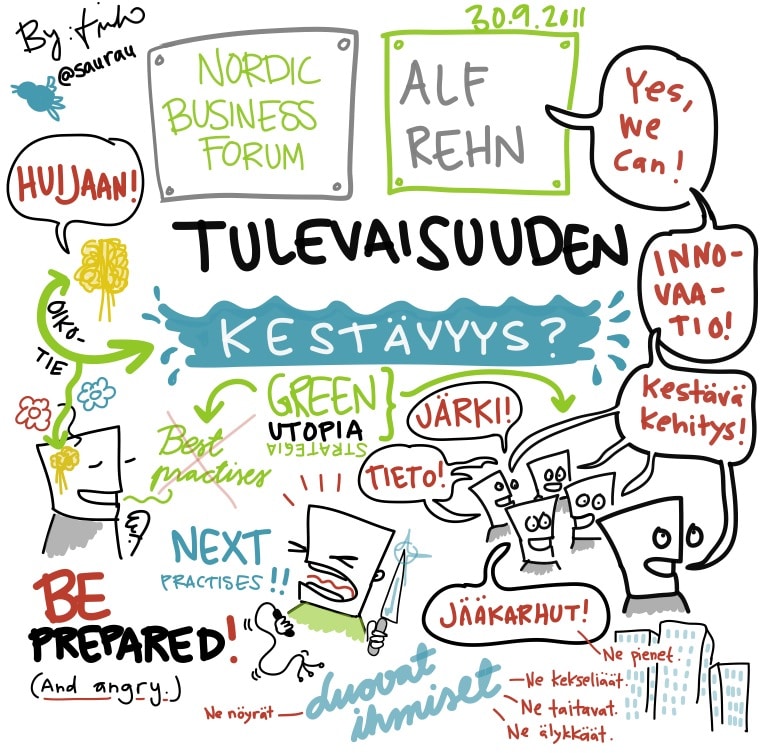 By:
@saurau
30.9.2011
NORDIC
BUSINESS
FORUM
ALF
REHN
Yes,
we
can!
HUIJAAN!
TULEVAISUUDEN
INNO-
VAA-
TIO!
OIKO-
TIE
KESTÄVYYS?
GREEN
UTOPIA
STRATEGIA
JÄRKI!
Kestävä
kehitys!
Best
practises
TIETO!
NEXT
PRACTISES!!
JÄÄKARHUT!
BE
PREPARED!
(And angry.)
Ne pienet.
luovat
ihmiset
Ne nöyrät
Ne kekseliäät.
Ne taitavat.
Ne älykkäät.